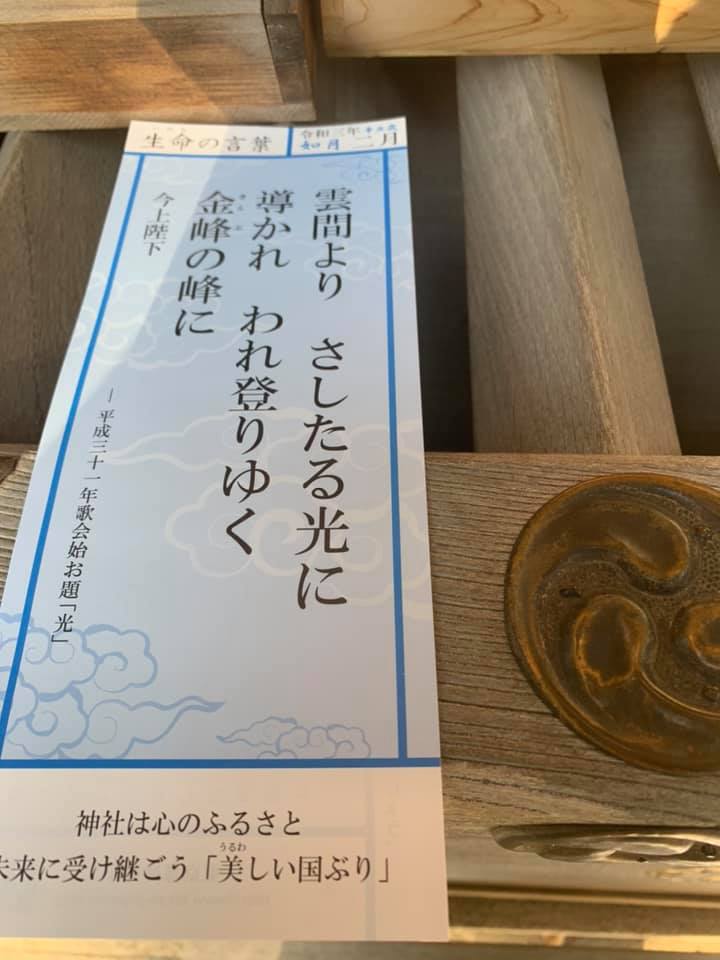 生命の言葉
令和三年
如月 二月
雲間より　さしたる光に
導かれ　われ登りゆく
金峰の峰に
きんぷ
今上陛下
― 平成三十一年歌会始お題「光」
神社は心のふるさと
未来に受け継ごう「美しい国ぶり」
うるわ